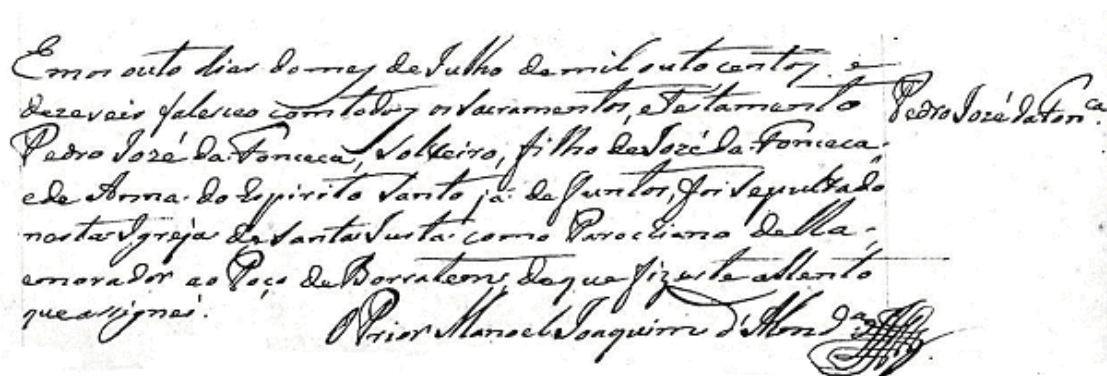 Em os outo dias do mez de Julho de mil outo centos, e
dezeseis faleceo com todos os Sacramentos, e Testamento
Pedro Jozé da Fonceca, Solteiro, filho de Jozé da Fonceca
e de Anna do Espirito Santo já defuntos, foi sepultado
nesta Igreja de Santa Justa como Parochiano della,
e morador ao Poço do Borratem, de que fiz este assento
que assignei.
O Prior Manoel Joaquim d'Almda
Pedro Jozé da Fonca.